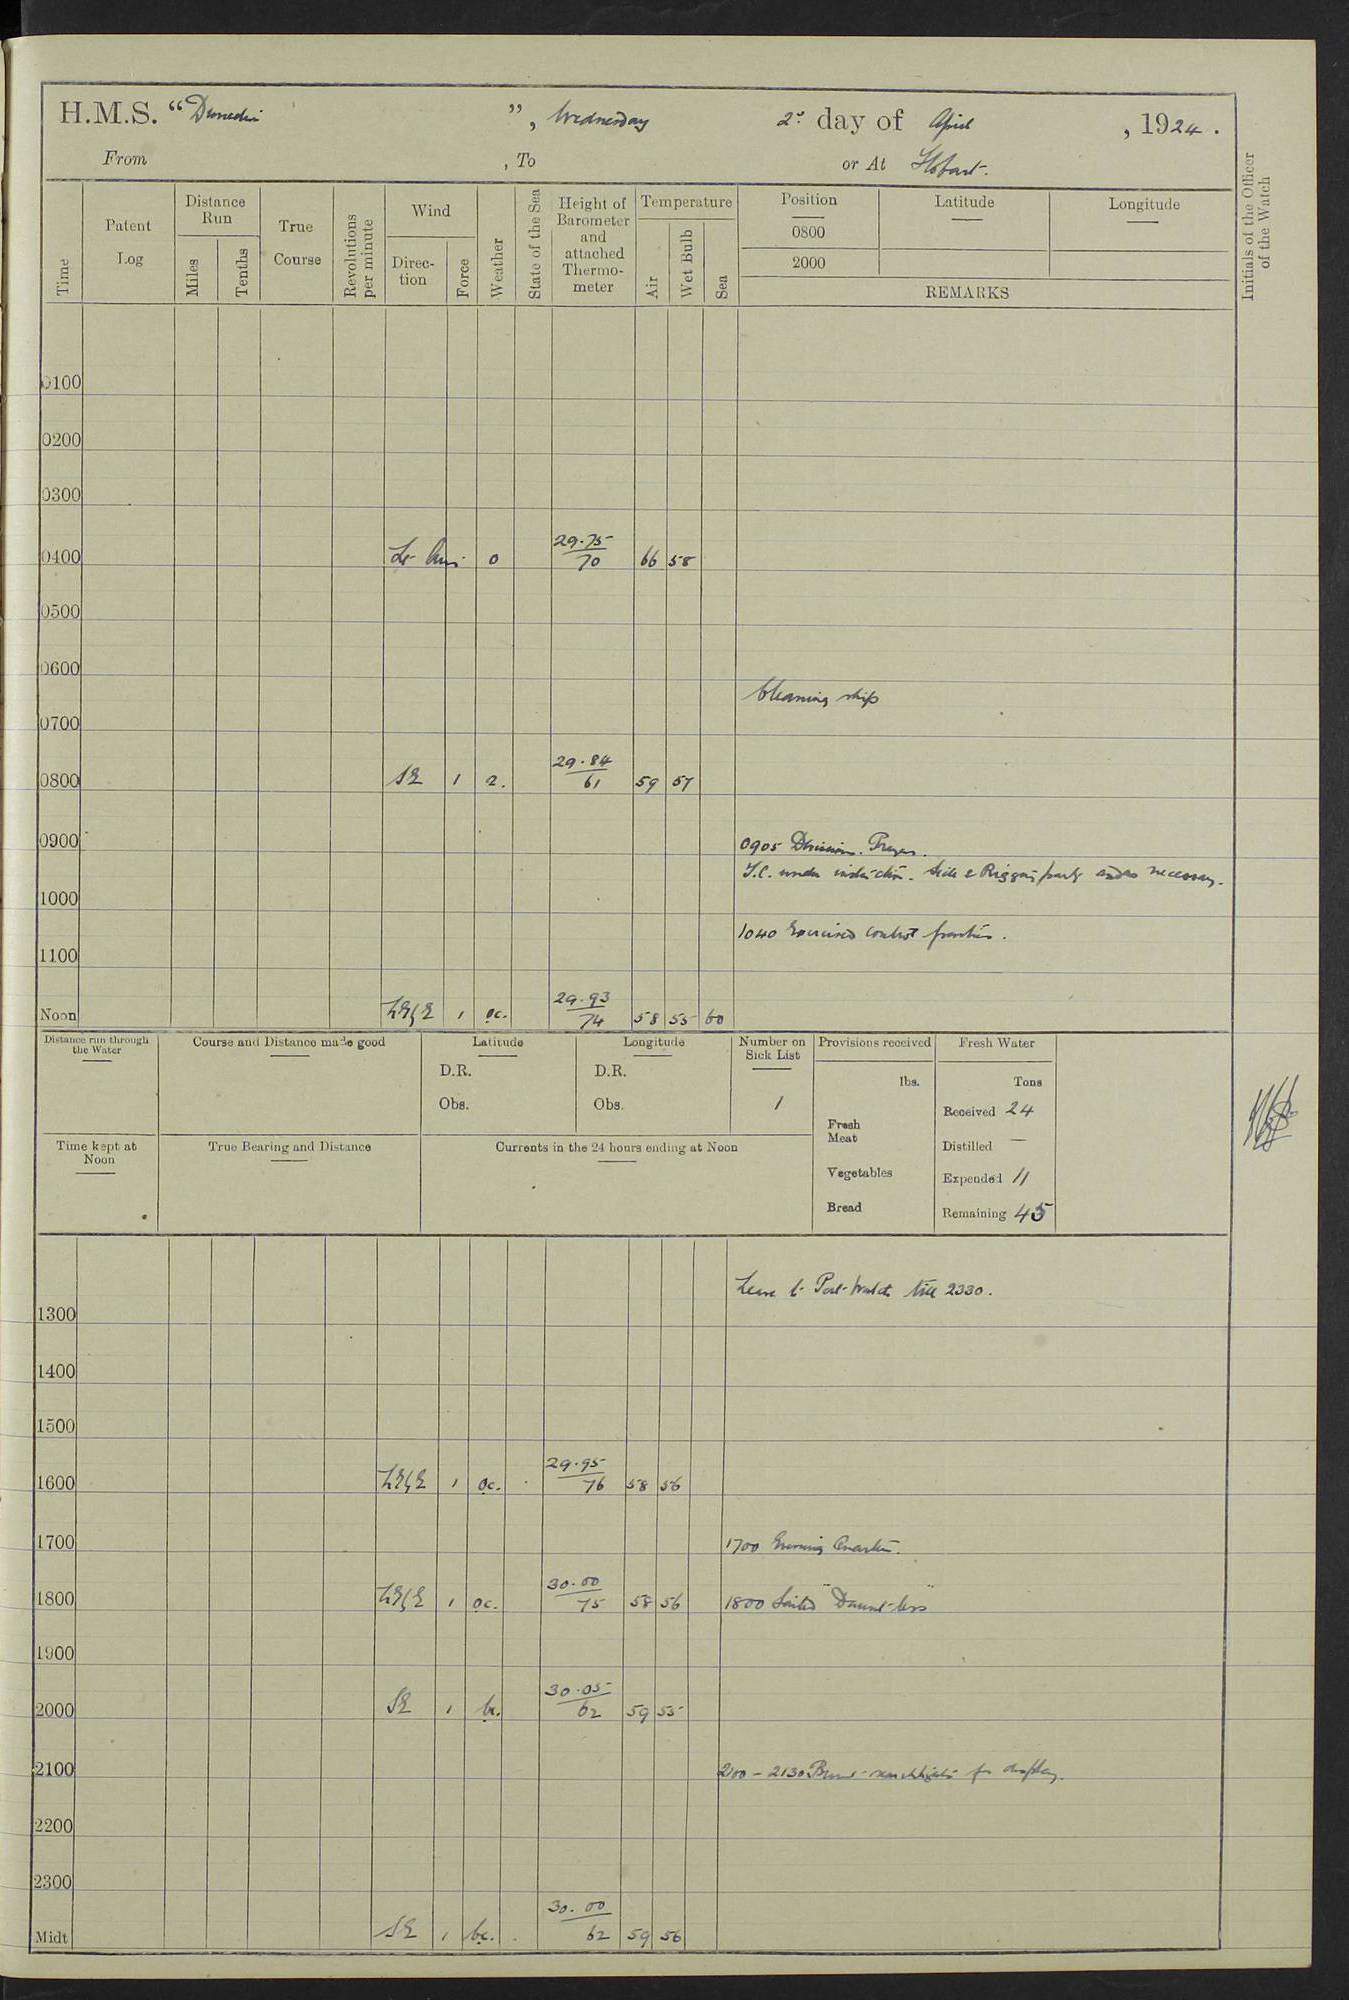 H.M.S. “Dunedin”, Wednesday 2d day of April, 1924.
From , To or At Hobart.
Time
Patent Log
Distance Run
Miles
Tenths
True Course
Revolutions per minute
Wind
Direction
Force
Weather
State of the Sea
Height of Barometer and attached Thermometer
Temperature
Air
Wet Bulb
Sea
Position
0800
2000
Latitude
Longitude
REMARKS
Initials of the Officer of the Watch
0100
0200
0300
0400 Lt Airs o 29.75 70 66 58
0500
0600
Cleaning ship
0700
0800 SE 1 2. 29.84 61 59 57
0900 0905 Divisions. Prayers.
under instruction. Side & Rigging party as necessary.
1000
1040 Exercised control parties.
1100
Noon 1 oc. 29.93 74 58 55 60
Distance run through the Water
Course and Distance made good
Latitude
D.R.
Obs.
Longitude
D.R.
Obs.
Number on Sick List
1
Provisions received
lbs.
Fresh Meat
Vegetables
Bread
Fresh Water
Tons
Received 24
Distilled —
Expended 11
Remaining 45
Time kept at Noon
True Bearing and Distance
Currents in the 24 hours ending at Noon
Leave to Port Watch till 2330.
1300
1400
1500
1600 1 oc. 29.95 76 58 56
1700 1700 Evening Quarters.
1800 1 oc. 30.00 75 58 56 1800 Sailed "Dauntless"
1900
2000 SE 1 bc. 30.05 62 59 55
2100 2100 – 2130 Burnt searchlights for display.
2200
2300
Midt SE 1 bc. 30.00 62 59 56